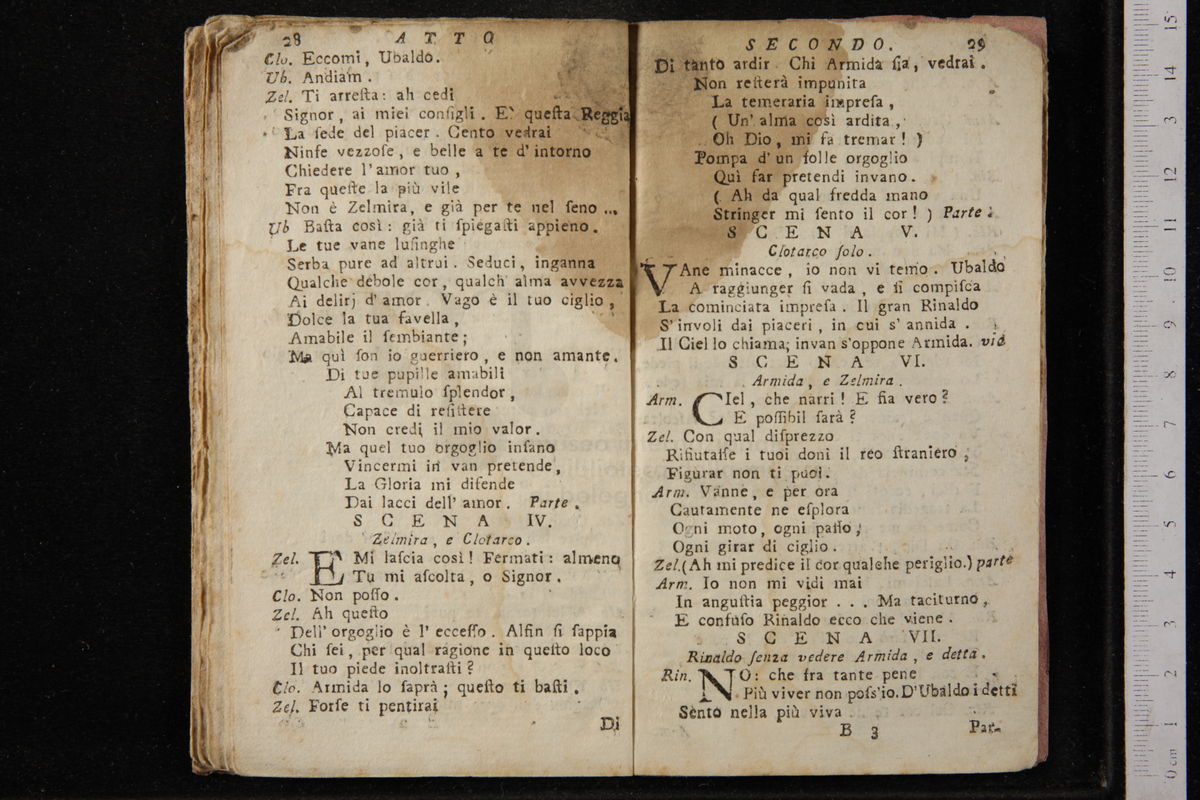 28 ATTO
Clo. Eccomi, Ubaldo.
Ub. Andiam.
Zel. Ti arreſta: ah cedi
Signor, ai miei conſigli. E' queſta Reggia
La ſede del piacer. Cento vedrai
Ninfe vezzoſe, e belle a te d' intorno
Chiedere l'amor tuo,
Fra queſte la più vile
Non è Zelmira, e già per te nel ſeno ...
Ub Baſta così: già ti ſpiegaſti appieno.
Le tue vane luſinghe
Serba pure ad altrui. Seduci, inganna
Qualche debole cor, qualch' alma avvezza
Ai delirj d' amor. Vago è il tuo ciglio,
Dolce la tua favella,
Amabile il ſembiante;
Ma quì ſon io guerriero, e non amante.
Di tue pupille amabili
Al tremulo ſplendor,
Capace di reſiſtere
Non credi il mio valor.
Ma quel tuo orgoglio inſano
Vincermi in van pretende,
La Gloria mi difende
Dai lacci dell' amor. Parte.
SCENA IV.
Zelmira, e Clotarco.
Zel. E Mi laſcia così! Fermati: almeno
Tu mi aſcolta, o Signor.
Clo. Non poſſo.
Zel. Ah queſto
Dell' orgoglio è l' ecceſſo. Alfin ſi ſappia
Chi ſei, per qual ragione in queſto loco
Il tuo piede inoltraſti?
Clo. Armida lo ſaprà; queſto ti baſti.
Zel. Forſe ti pentirai
Di
SECONDO. 29
Di tanto ardir. Chi Armida ſia, vedrai.
Non reſterà impunita
La temeraria impreſa,
( Un' alma così ardita,
Oh Dio, mi fa tremar! )
Pompa d' un folle orgoglio
Quì far pretendi invano.
( Ah da qual fredda mano
Stringer mi ſento il cor! ) Parte.
SCENA V.
Clotarco ſolo.
VAne minacce, io non vi temo. Ubaldo
A raggiunger ſi vada, e ſi compiſca
La cominciata impreſa. Il gran Rinaldo
S' involi dai piaceri, in cui s' annida.
Il Ciel lo chiama; invan s'oppone Armida. via
SCENA VI.
Armida, e Zelmira.
Arm. CIel, che narri! E fia vero?
E poſſibil ſarà?
Zel. Con qual diſprezzo
Rifiutaſſe i tuoi doni il reo ſtraniero,
Figurar non ti puoi.
Arm. Vanne, e per ora
Cautamente ne eſplora
Ogni moto, ogni paſſo,
Ogni girar di ciglio.
Zel.(Ah mi predice il cor qualche periglio.) parte
Arm. Io non mi vidi mai
In anguſtia peggior ... Ma taciturno,
E confuſo Rinaldo ecco che viene.
SCENA VII.
Rinaldo ſenza vedere Armida, e detta.
Rin. NO: che fra tante pene
Più viver non poſs'io. D'Ubaldo i detti
Sento nella più viva
B 3 Par-